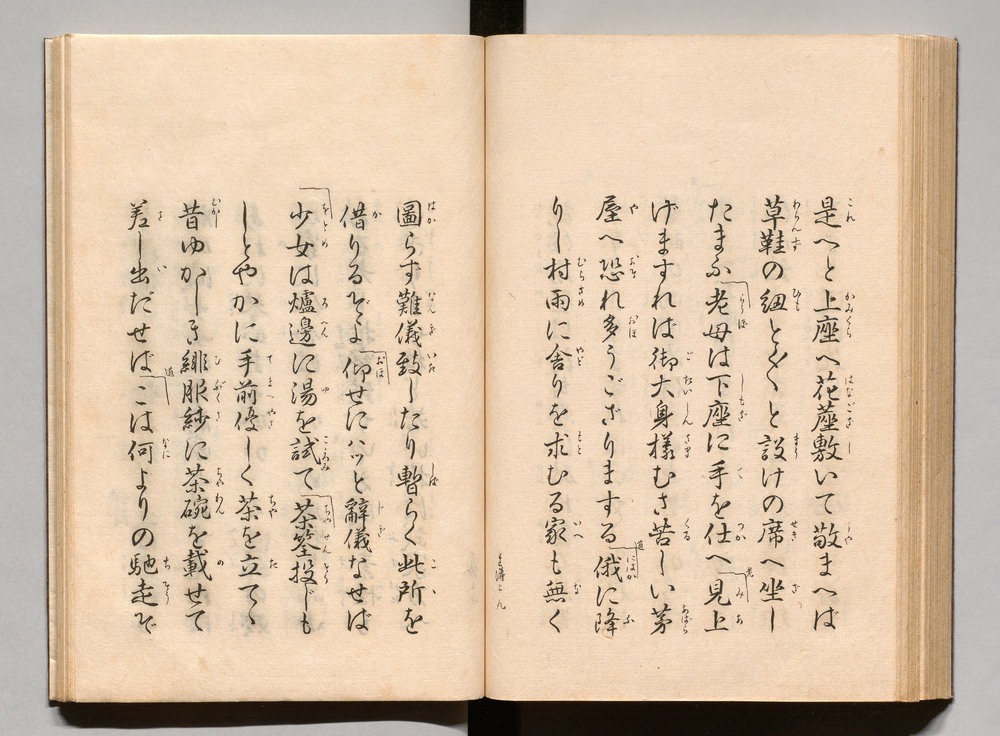 是へと上座へ花蓙敷いて敬まへば
草鞋の紐とく〳〵と設けの席へ坐し
たまふ老母は下座に手を仕へ見上
げますれば御大身様むさ苦しい茅
屋へ恐れ多うござりまする俄に降
りし村雨に舎りを求むる家も無く
圖らず難儀致したり暫らく此所を
借りるぞよ仰せにハッと辭儀なせば
少女は爐邊に湯を試て茶筌投じも
しとやかに手前優しく茶を立てゝ
昔ゆかしき緋服紗に茶碗を載せて
差し出だせばこは何よりの馳走ぞ